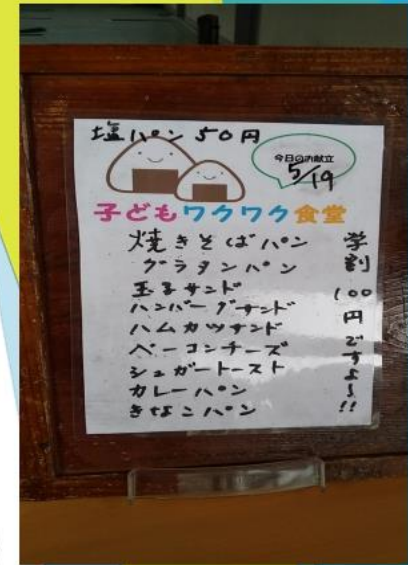 塩パン 50円
今日の献立
5/19
子どもワクワク食堂
焼きそばパン
グラタンパン
玉子サンド
ハンバーグサンド
ハムカツサンド
ベーコンチーズ
シュガートースト
カレーパン
きなこパン
学割100円ですよ!!